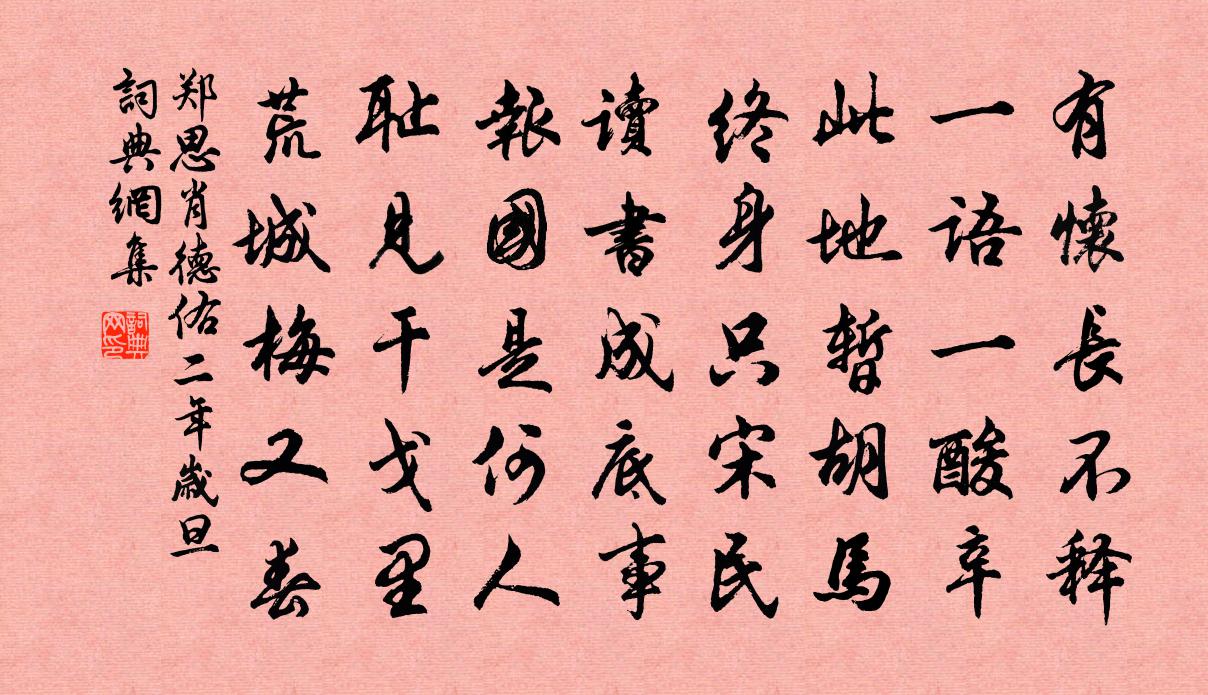 有懷長不释
一語一酸辛
此地暫胡馬
終身只宋民
讀書成底事
報國是何人
耻見干戈里
荒城梅又春
郑思肖德佑二年歲旦
詞典網集
詞典网印